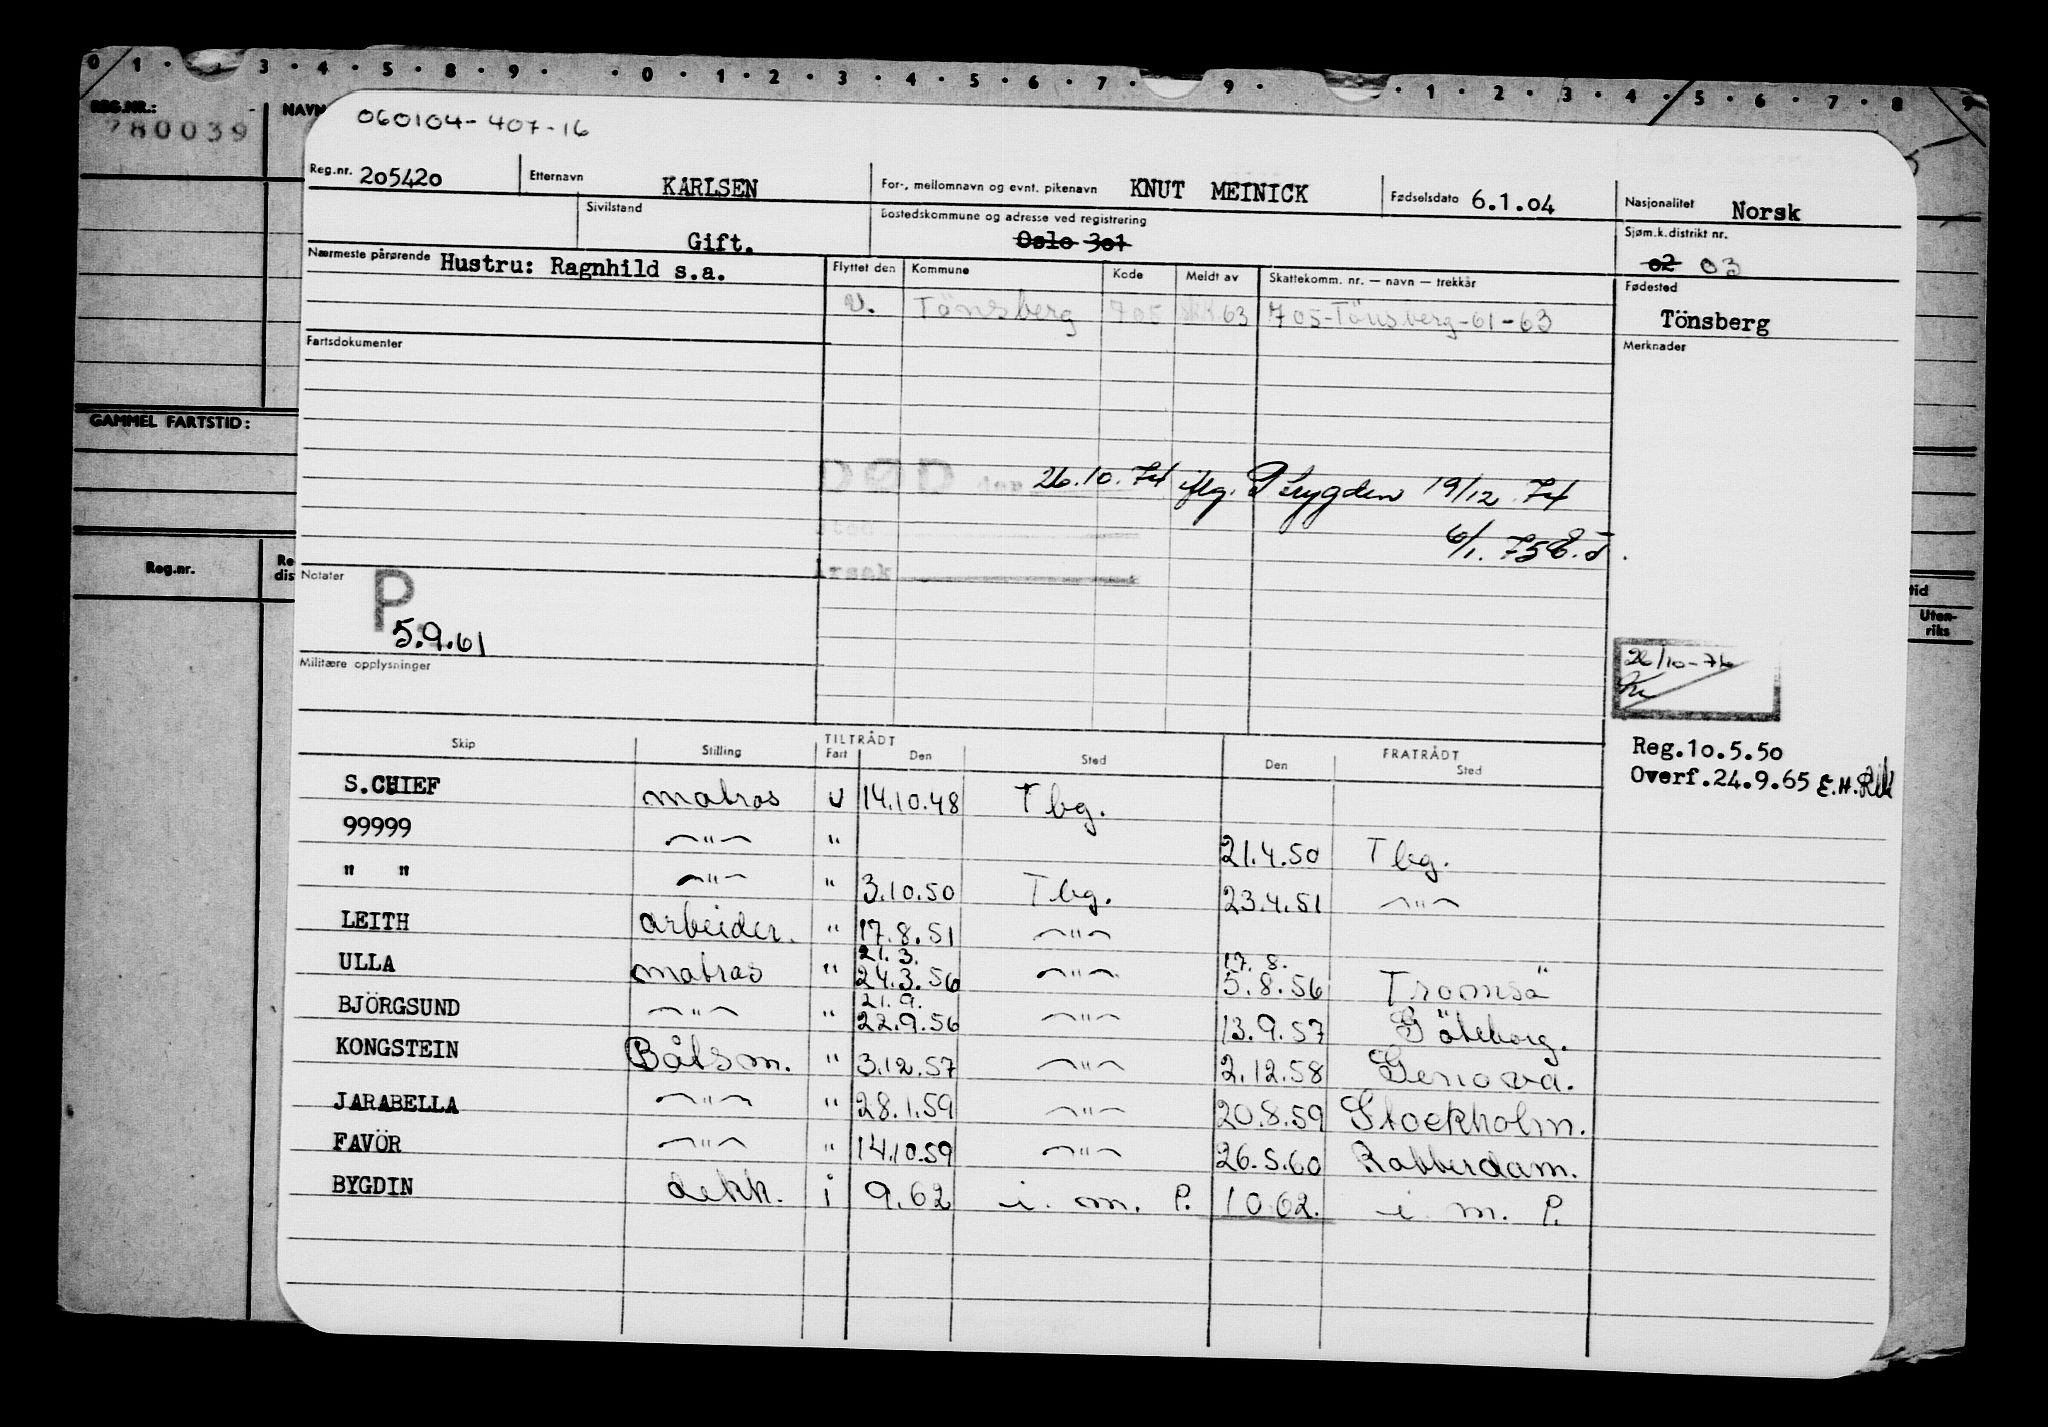 0 1 · 3 · 4 · 5 · 8 · 9 · · 0 · 1 · 2 · 3 · 4 · 5 · 6 · 7 · 9 · · 1 · 2 · 3 · 4 · 5 · 6 · 7 · 8 9
REG.NR.: NAVN
280039
060104-407-16
Reg.nr. 205420 Etternavn KARLSEN For-, mellomnavn og evnt. pikenavn KNUT MEINICK Fødselsdato 6.1.04 Nasjonalitet Norsk
Sivilstand Gift. Bostedskommune og adresse ved registrering Oslo 301 Sjøm.k.distrikt nr. 02 03
Nærmeste pårørende Hustru: Ragnhild s.a. Flyttet den Kommune Kode Meldt av Skattekomm. nr. — navn — trekkår Fødested
v. Tönsberg 705 63 705-Tönsberg-61-63 Tönsberg
Fartsdokumenter Merknader
GAMMEL FARTSTID:
DØD 26.10.74 iflg. Trygden 19/12 74
6/1. 75
Årsak
Reg.nr. Re dis
Notater P 5.9.61
tid
Uten-
riks
Militære opplysninger
26/10-76
Skip Stilling TILTRÅDT Fart Den Sted FRATRÅDT Den Sted
Reg.10.5.50
Overf.24.9.65 E.H.
S.CHIEF matros u 14.10.48 Tbg.
99999 —"— " 21.4.50 Tbg.
" " —"— " 3.10.50 Tbg. 23.4.51 —"—
LEITH arbeider. " 17.8.51 —"—
21.3. 17. 8.
ULLA matros " 24.3.56 —"— 5.8.56 Tromsö
21.9.
BJÖRGSUND —"— " 22.9.56 —"— 13.9.57 Göteborg.
KONGSTEIN Båtsm. " 3.12.57 —"— 2.12.58 Genova.
JARABELLA —"— " 28.1.59 —"— 20.8.59 Stockholm.
FAVÖR —"— " 14.10.59 —"— 26.5.60 Rotterdam.
BYGDIN dekk. i 9.62 i. m. P. 10 62. i m. P.